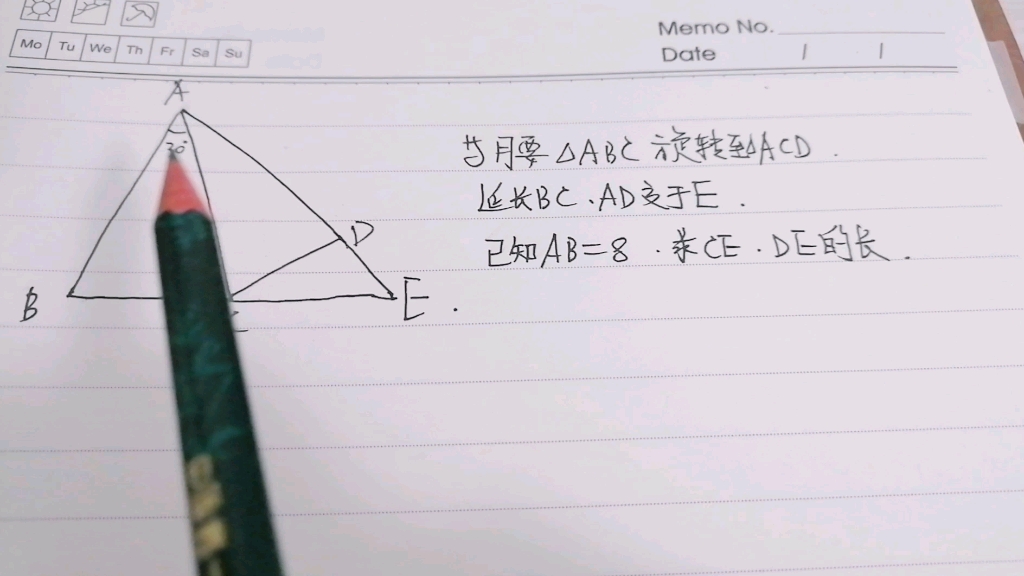 Memo No.
Mo Tu We Th Fr Sa Su
Date / /
A
30°
与月要△ABC旋转至△ACD.
延长BC.AD交于E.
D
已知AB=8.求CE.DE的长.
B
E.